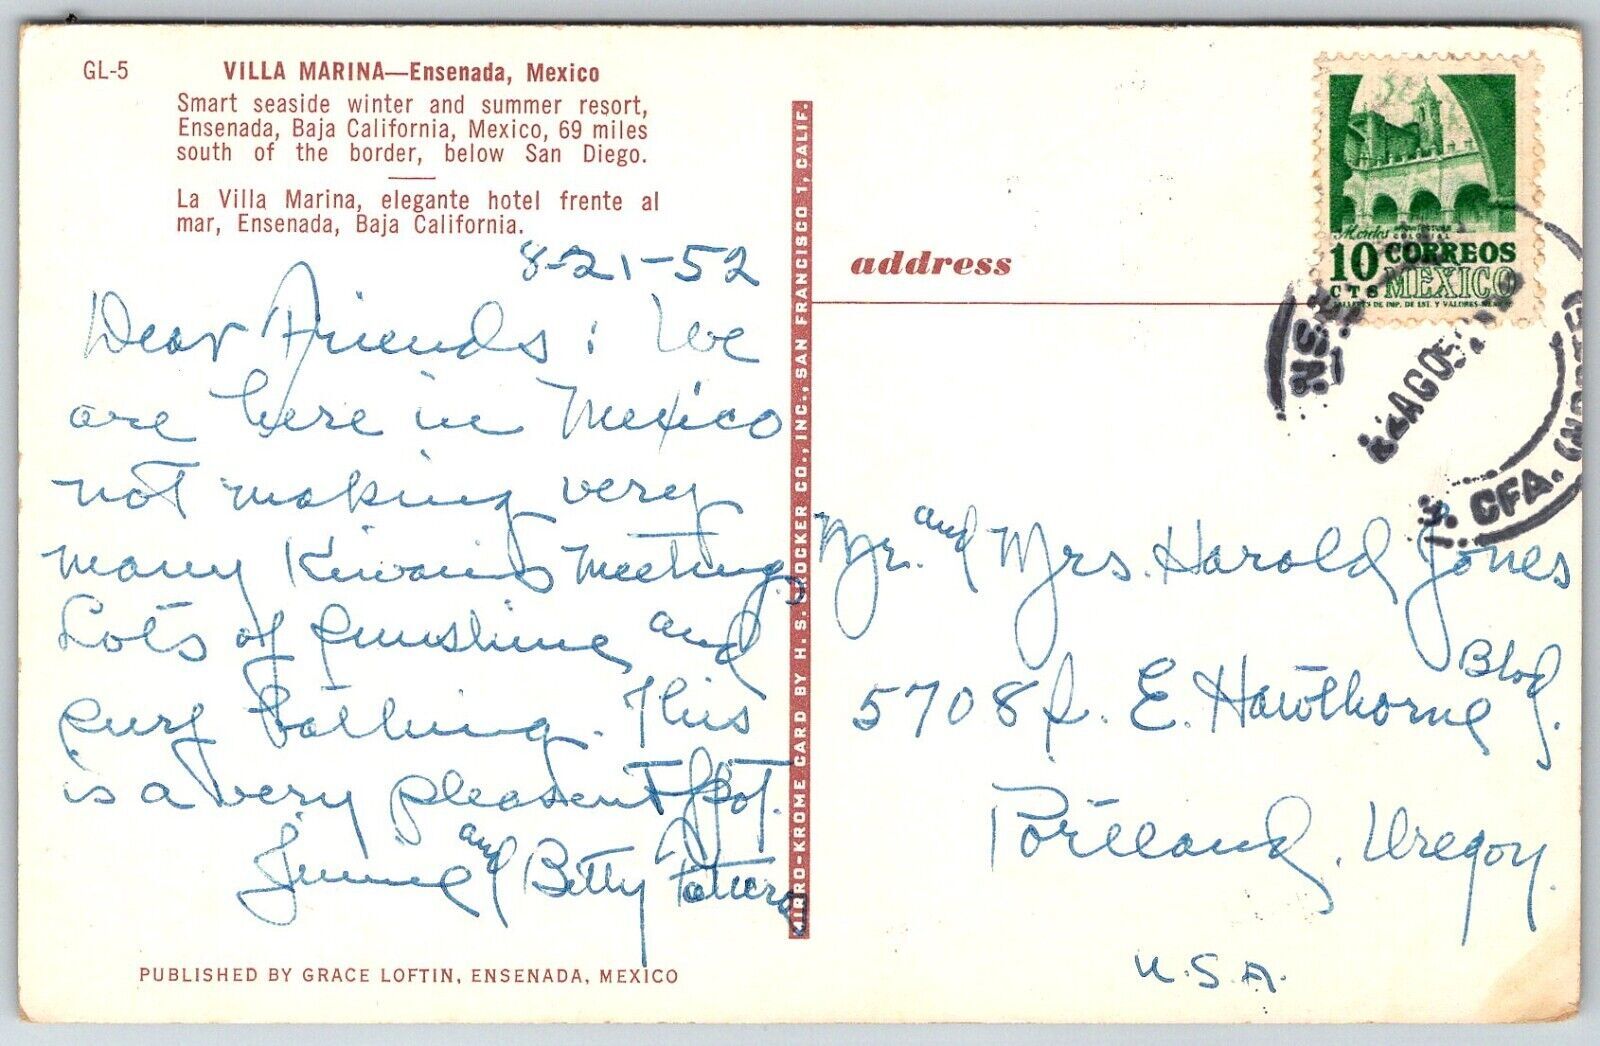 GL-5
VILLA MARINA—Ensenada, Mexico
Smart seaside winter and summer resort,
Ensenada, Baja California, Mexico, 69 miles
south of the border, below San Diego.
La Villa Marina, elegante hotel frente al
mar, Ensenada, Baja California.
8-21-52
Dear Friends: We
are here in Mexico
not making very
many Kiwanis Meetings
Lots of sunshine and
surf bathing. This
is a very pleasent spot.
Jimmie and Betty
PUBLISHED BY GRACE LOFTIN, ENSENADA, MEXICO
MIRRO-KROME CARD BY H. S. CROCKER CO., INC., SAN FRANCISCO 1, CALIF.
address
Morelos ARQUITECTURA
COLONIAL
10 CORREOS
CTS MEXICO
TALLERES DE IMP. DE EST. Y VALORES-MEXICO
AGO 52
CFA.
Mr. and Mrs. Harold Jones
5708 S. E. Hawthorne Blvd.
Portland, Oregon.
U.S.A.